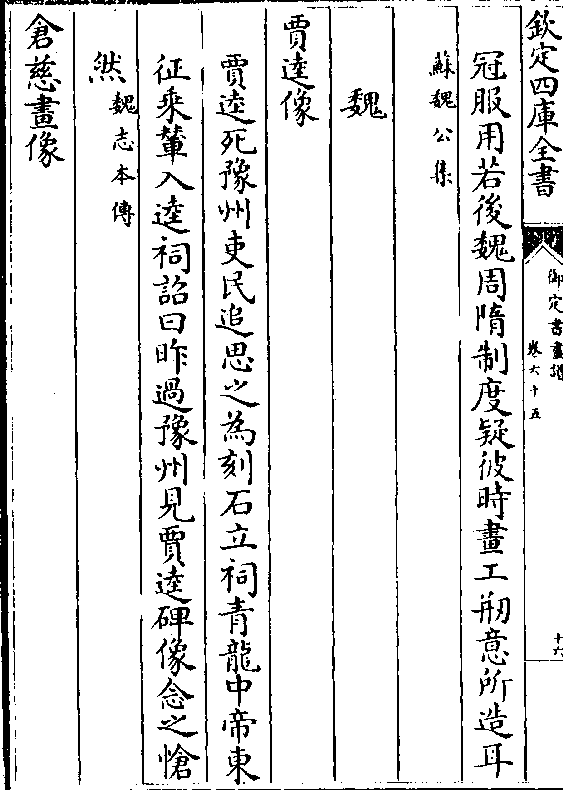 欽定四庫全書
御定書畫譜
卷六十五
十六
冠服用若後魏周隋制度疑彼時畫工剏意所造耳
蘇魏公集
魏
賈逵像
賈逵死豫州吏民追思之為刻石立祠青龍中帝東
征乘輦入逵祠詔曰昨過豫州見賈逵碑像念之愴
然魏志本傳
倉慈畫像